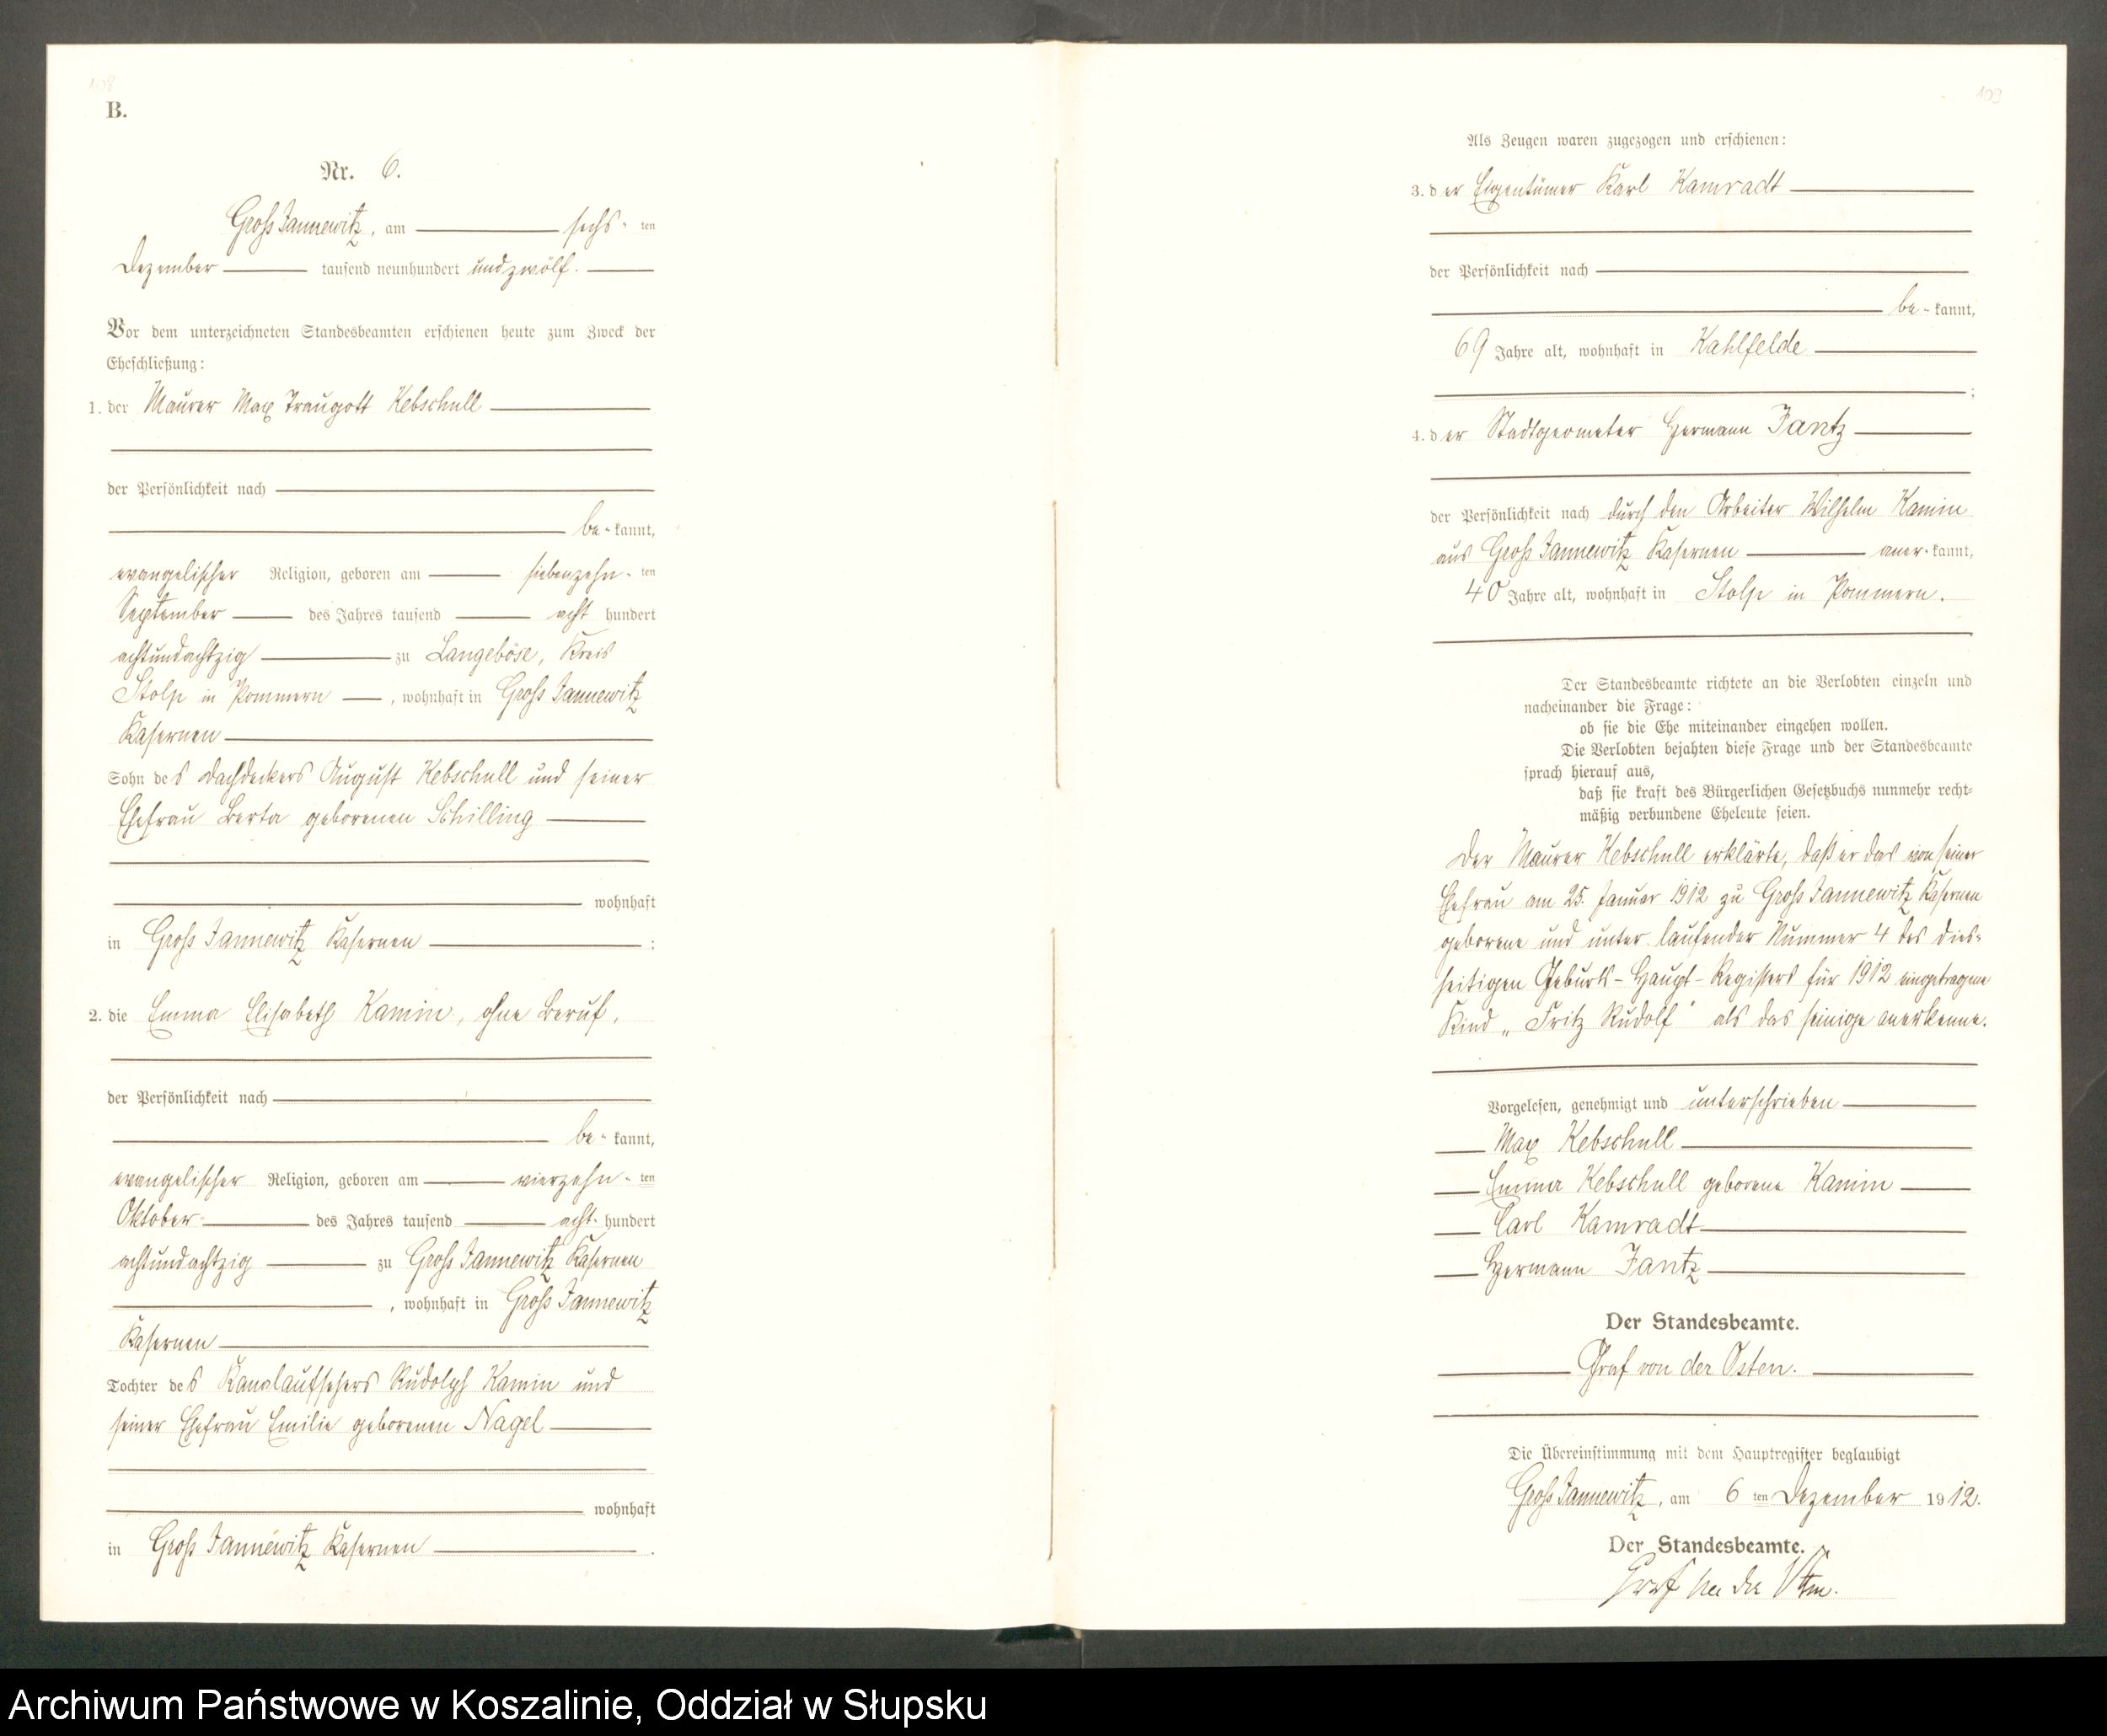 108
B.
Nr. 6.
Groß Jannewitz, am sechs- ten
Dezember tausend neunhundert undzwölf.
Vor dem unterzeichneten Standesbeamten erschienen heute zum Zweck der
Eheschließung:
1. der Maurer Max Traugott Kebschull
der Persönlichkeit nach
be- kannt,
evangelischer Religion, geboren am siebenzehn- ten
September des Jahres tausend acht hundert
achtundachtzig zu Langeböse, Kreis
Stolp in Pommern, wohnhaft in Groß Jannewitz
Kasernen
Sohn des Dachdeckers August Kebschull und seiner
Ehefrau Berta geborenen Schilling
wohnhaft
in Groß Jannewitz Kasernen ;
2. die Emma Elisabeth Kamin, ohne Beruf,
der Persönlichkeit nach
be- kannt,
evangelischer Religion, geboren am vierzehn- ten
Oktober des Jahres tausend acht- hundert
achtundachtzig zu Groß Jannewitz Kasernen
, wohnhaft in Groß Jannewitz
Kasernen
Tochter des Kanalaufsehers Rudolph Kamin und
seiner Ehefrau Emilie geborenen Nagel
wohnhaft
in Groß Jannewitz Kasernen .
103
Als Zeugen waren zugezogen und erschienen:
3. der Eigentümer Karl Kamradt
der Persönlichkeit nach
be- kannt,
69 Jahre alt, wohnhaft in Kahlfelde
;
4. der Stadtgeometer Hermann Jantz
der Persönlichkeit nach durch den Arbeiter Wilhelm Kamin
aus Groß Jannewitz Kasernen aner- kannt,
40 Jahre alt, wohnhaft in Stolp in Pommern.
Der Standesbeamte richtete an die Verlobten einzeln und
nacheinander die Frage:
ob sie die Ehe miteinander eingehen wollen.
Die Verlobten bejahten diese Frage und der Standesbeamte
sprach hierauf aus,
daß sie kraft des Bürgerlichen Gesetzbuchs nunmehr recht-
mäßig verbundene Eheleute seien.
Der Maurer Kebschull erklärte, daß er das von seiner
Ehefrau am 25. Januar 1912 zu Groß Jannewitz Kasernen
geborene und unter laufender Nummer 4 des dies-
seitigen Geburts-Haupt-Registers für 1912 eingetragene
Kind „Fritz Rudolf“ als das seinige anerkenne.
Vorgelesen, genehmigt und unterschrieben
Max Kebschull
Emma Kebschull geborene Kamin
Carl Kamradt
Hermann Jantz
Der Standesbeamte.
Graf von der Osten.
Die Übereinstimmung mit dem Hauptregister beglaubigt
Groß Jannewitz, am 6 ten Dezember 1912.
Der Standesbeamte.
Graf von der Osten.
Archiwum Państwowe w Koszalinie, Oddział w Słupsku